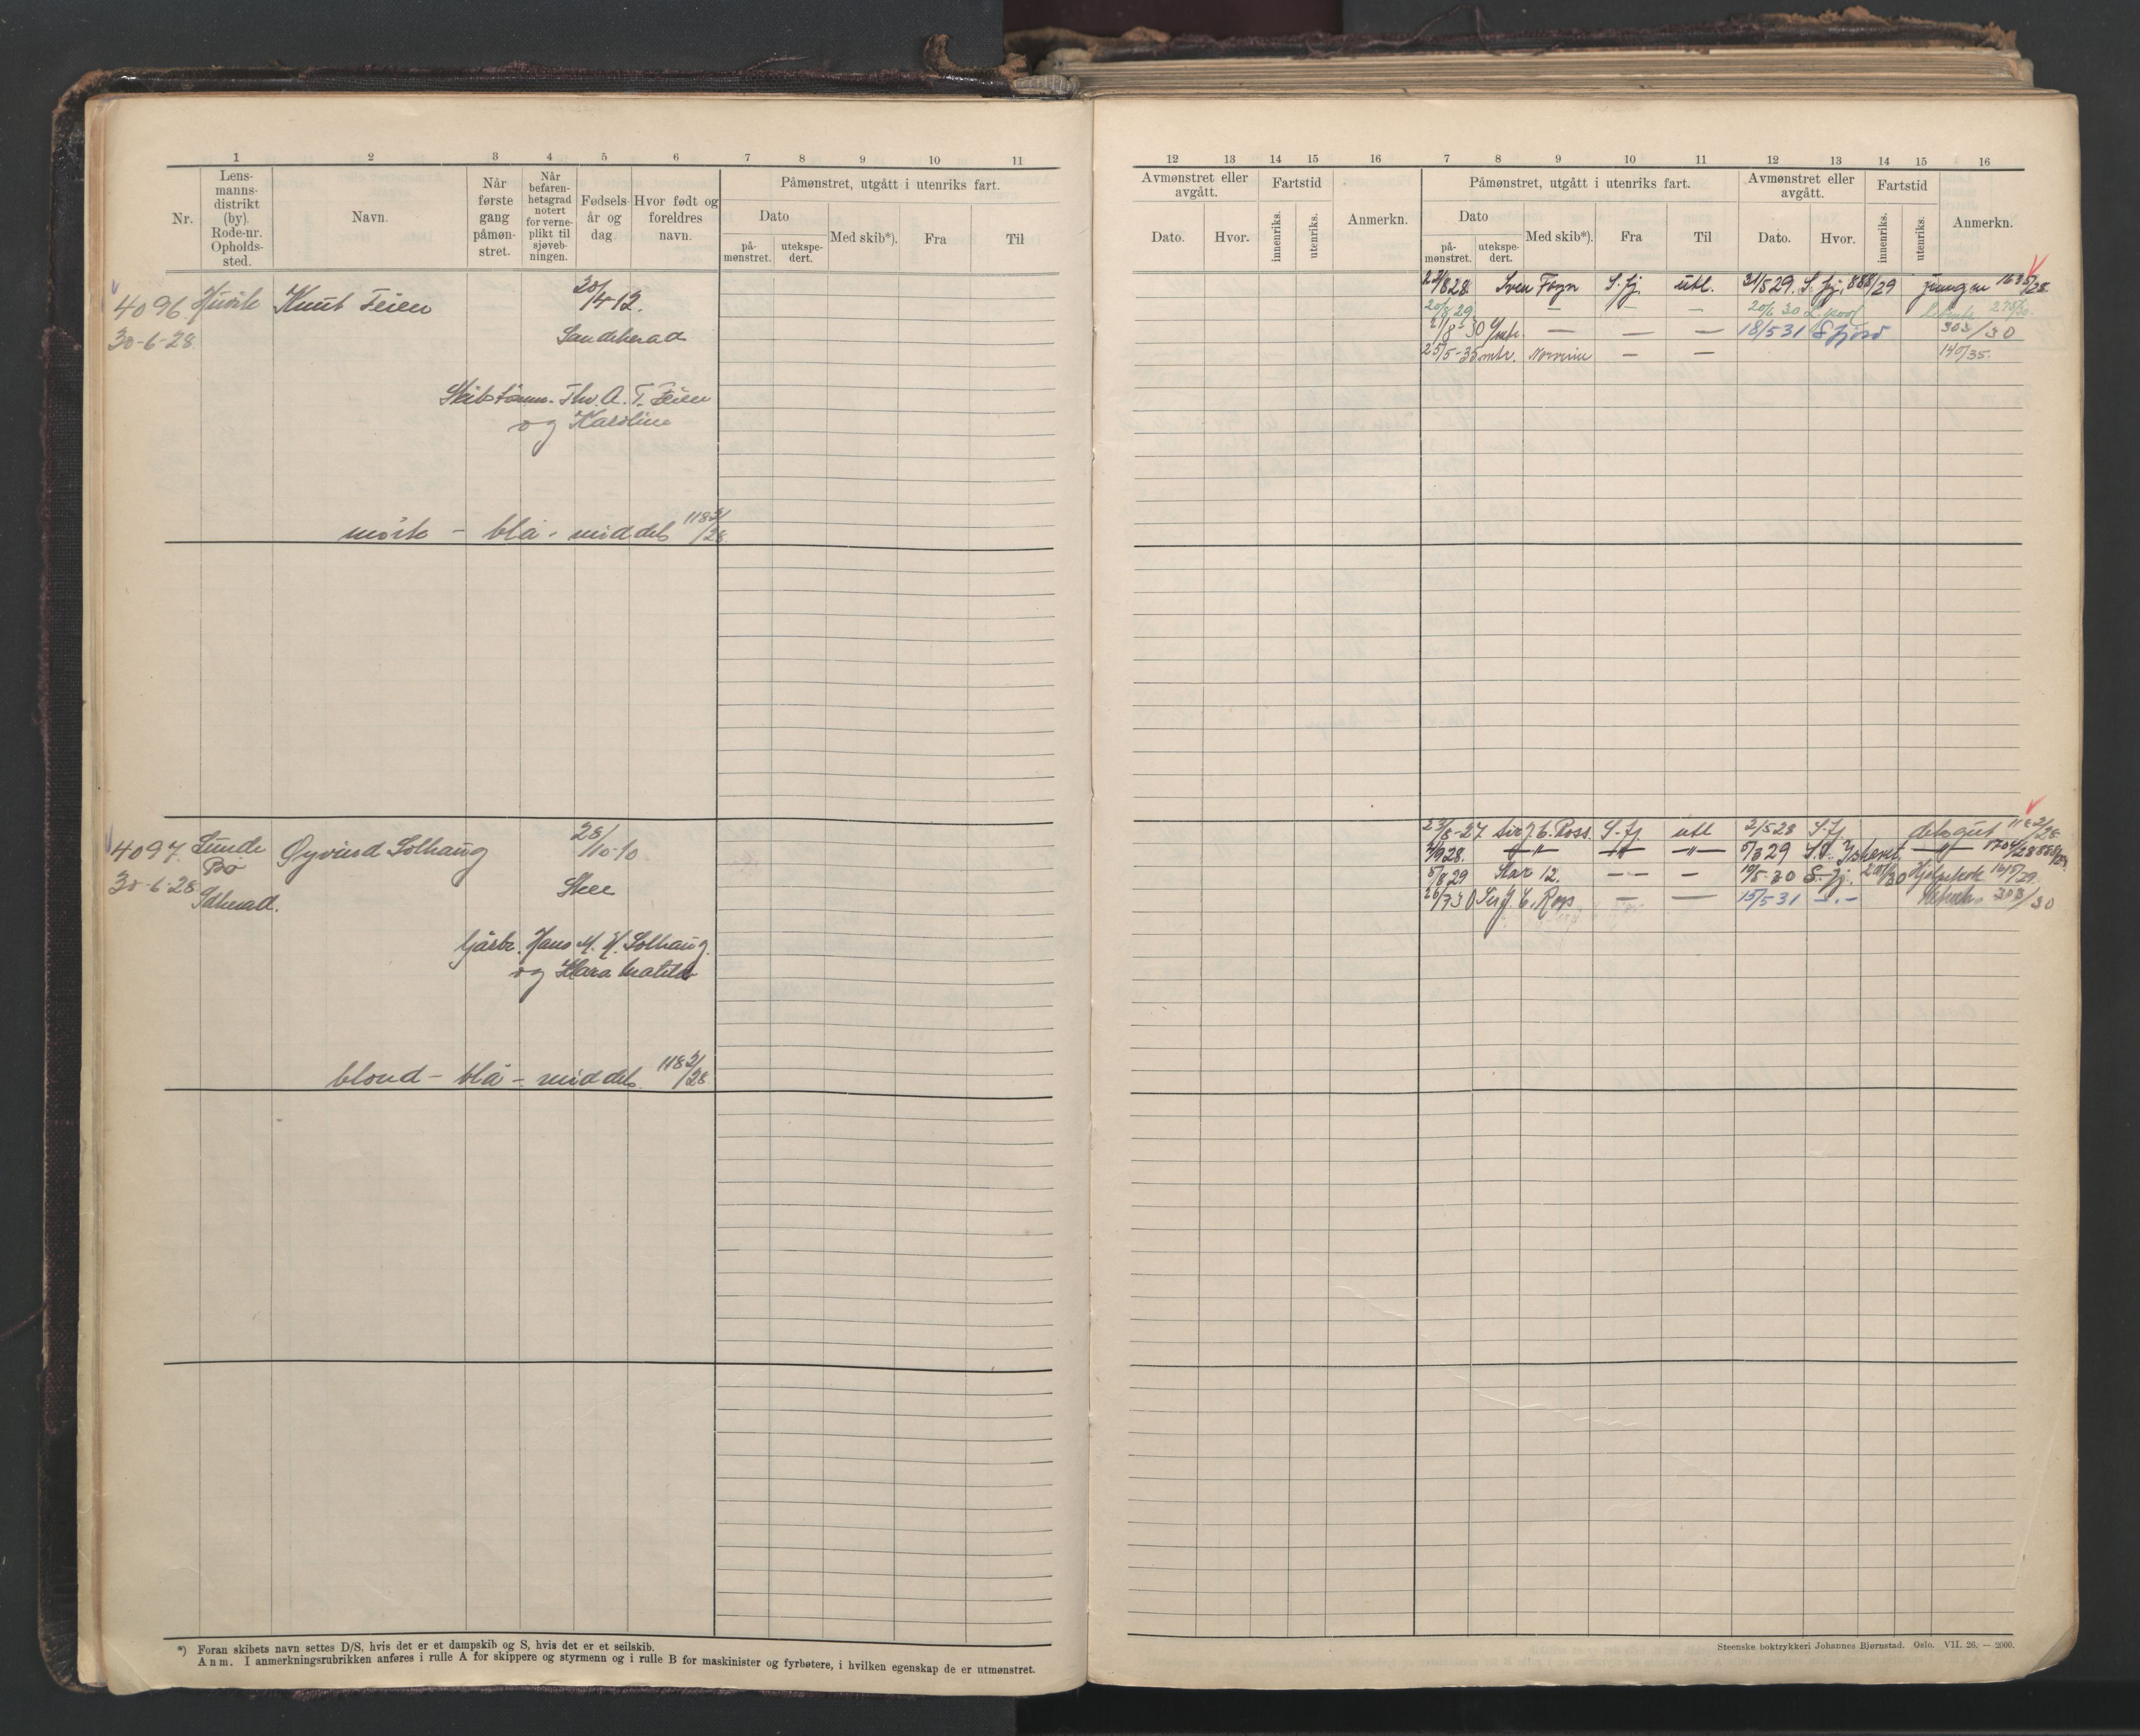 1 2 3 4 5 6 7 8 9 10 11
Nr.
Lens-
manns-
distrikt
(by).
Rode-nr.
Opholds-
sted.
Navn.
Når
første
gang
påmøn-
stret.
Når
befaren-
hetsgrad
notert
for verne-
plikt til
sjøveb-
ningen.
Fødsels-
år og
dag.
Hvor født og
foreldres
navn.
Påmønstret, utgått i utenriks fart.
Dato
på-
mønstret.
utekspe-
dert.
Med skib*).
Fra
Til
4096 Huvik Knut Feien 20/4-12.
30-6-28 Sandeherad
Skibstømm. Thv. A. T. Feien
og Karoline
mørk - blå - middels 1182/28
4097 Sunde Øyvind Solhaug 28/10-10
Bø
30-6-28 Skee
Idherad.
Gårbr. Hans M. H. Solhaug
og Klara Matilde
blond - blå - middels 1182/28
*) Foran skibets navn settes D/S, hvis det er et dampskib og S, hvis det er et seilskib.
Anm. I anmerkningsrubrikken anføres i rulle A for skippere og styrmenn og i rulle B for maskinister og fyrbøtere, i hvilken egenskap de er utmønstret.
12 13 14 15 16 7 8 9 10 11 12 13 14 15 16
Avmønstret eller
avgått.
Dato.
Hvor.
Fartstid
innenriks.
utenriks.
Anmerkn.
Påmønstret, utgått i utenriks fart.
Dato
på-
mønstret.
utekspe-
dert.
Med skib*).
Fra
Til
Avmønstret eller
avgått.
Dato.
Hvor.
Fartstid
innenriks.
utenriks.
Anmerkn.
Sven Foyn S.fj. utl. S.fj. 888/29 jungm
20/8 29 — — — 20/6 30 L.pool
21/8-30 — — — 18/5 31 Sfjord 303/30
25/5-35 mtr. Norvinn — — 140/35.
23/8-27 Sir J. C. Ross. S.fj utl 2/5 28 S.fj. deksgut 1182/28
28. —"— —"— —"— 5/3 29 Ishavet —"— 1704/28
5/8 29 Star 12. — — — 19/5-30 S.fj. Hjelpekok
26/7 30 Sir J. C. Ross — — 15/5 31 —.— 303/30
Steenske boktrykkeri Johannes Bjørnstad. Oslo. VII. 26. — 2000.